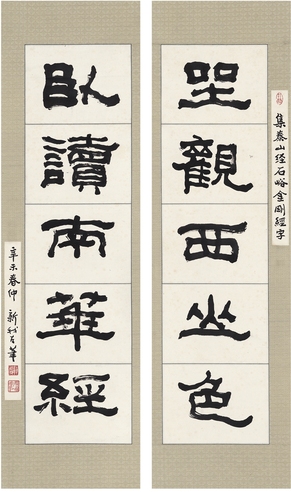 集泰山经石峪金剛經字
坐觀西山色
臥讀南華經
辛未春仲 新我左筆